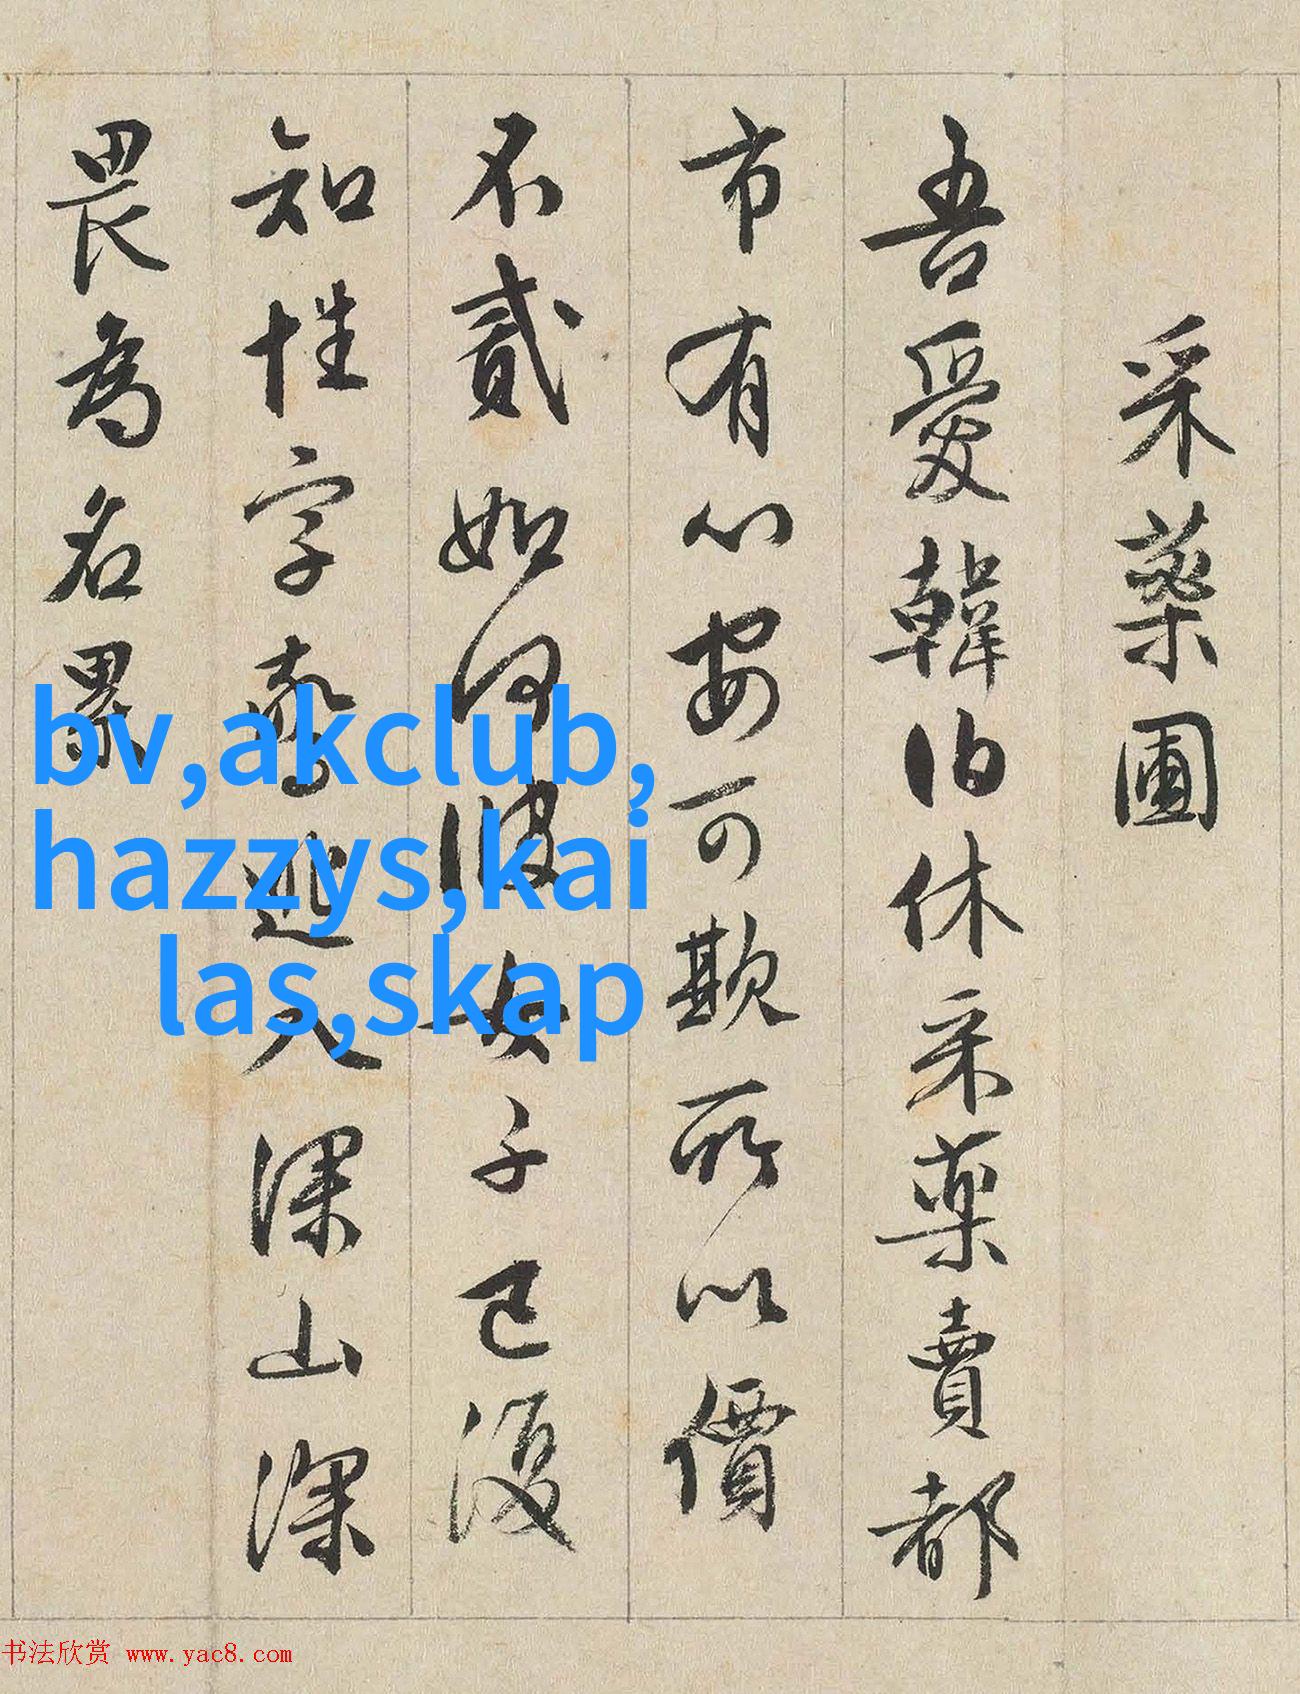 采藥圃
吾愛韓伯休采藥賣都
市有心安可欺所以價
不貳如何彼女子已復
知性字驚逃入深山深
畏為名累
bv,akclub,
hazzys,kai
las,skap
书法欣赏 www.yac8.com